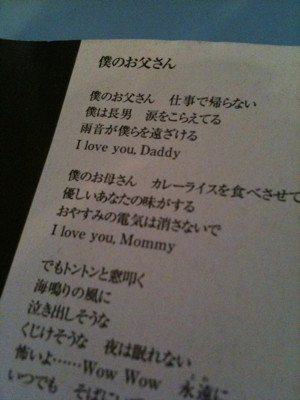 僕のお父さん
僕のお父さん　仕事で帰らない
僕は長男　涙をこらえてる
雨音が僕らを遠ざける
I love you, Daddy
僕のお母さん　カレーライスを食べさせて
優しいあなたの味がする
おやすみの電気は消さないで
I love you, Mommy
でもトントンと窓叩く
海鳴りの風に
泣き出しそうな
くじけそうな　夜は眠れない
怖いよ……Wow Wow　永遠に
いつでも　そばにい